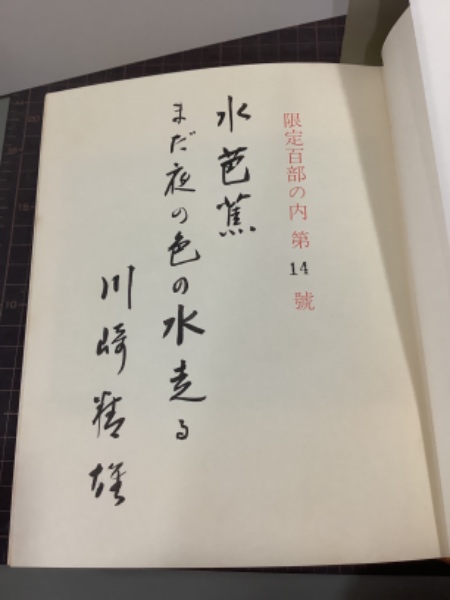 限定百部の内 第 14 號
水芭蕉
まだ夜の色の水走る
川崎精雄